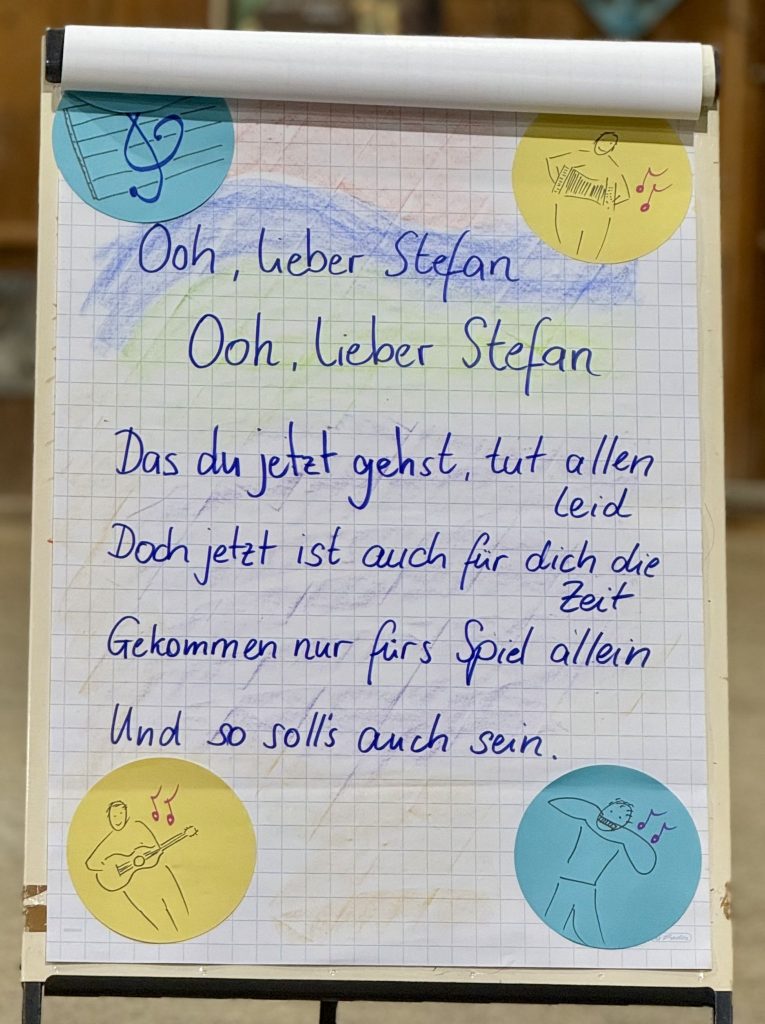 Ooh, lieber Stefan
Ooh, lieber Stefan
Das du jetzt gehst, tut allen
leid
Doch jetzt ist auch für dich die
Zeit
Gekommen nur fürs Spiel allein
Und so soll's auch sein.